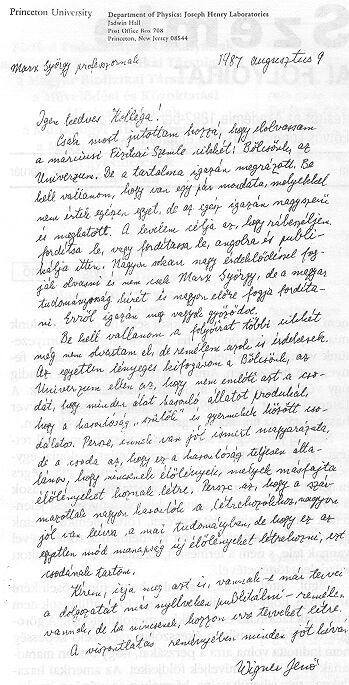 Princeton University
Department of Physics: Joseph Henry Laboratories
Jadwin Hall
Post Office Box 708
Princeton, New Jersey 08544
Marx György professzornak
1987 augusztus 9
Igen kedves Kolléga!
Csak most jutottam hozzá, hogy elolvassam
a márciusi Fizikai Szemle cikkét: Bölcsőnk, az
Univerzum. De a tartalma igazán megrázott. Be
kell vallanom, hogy van egy pár mondata, melyekkel
nem értek egészen egyet, de az egész igazán nagyszerű
és meghatott. A levelem célja az, hogy rábeszéljem,
fordítsa le, vagy fordíttassa le, angolra és publi-
kálja itten. Nagyon sokan nagy érdeklődéssel fog-
ják olvasni és nem csak Marx György, de a magyar
tudományosság hírét is nagyon előre fogja fordíta-
ni. Erről igazán meg vagyok győződve.
Be kell vallanom a folyóirat többi cikkét
még nem olvastam el, de remélem azok is érdekesek.
Az egyetlen lényeges kifogásom a Bölcsőnk, az
Univerzum ellen az, hogy nem említi azt a cso-
dát, hogy minden állat hasonló állatot produkál,
hogy a hasonlóság „szülők" és gyermekek között cso-
dálatos. Persze, ennek van jól ismert magyarázata,
de a csoda az, hogy ez a hasonlóság teljesen álta-
lános, hogy nincsenek élőlények, melyek másfajta
élőlényeket hoznak létre. Persze az, hogy a szár-
mazottak nagyon hasonlók a létrehozókhoz, nagyon
jól van leírva a mai tudományban, de hogy ez az
egyetlen mód manapság új élőlényeket létrehozni, ezt
csodának tartom.
Kérem, írja meg azt is, vannak-e mai tervei
a dolgozatát más nyelveken publikálni - remélem
vannak, de ha nincsenek, hozzon erre terveket létre.
A viszontlátás reményében minden jót kíván
Wigner Jenő